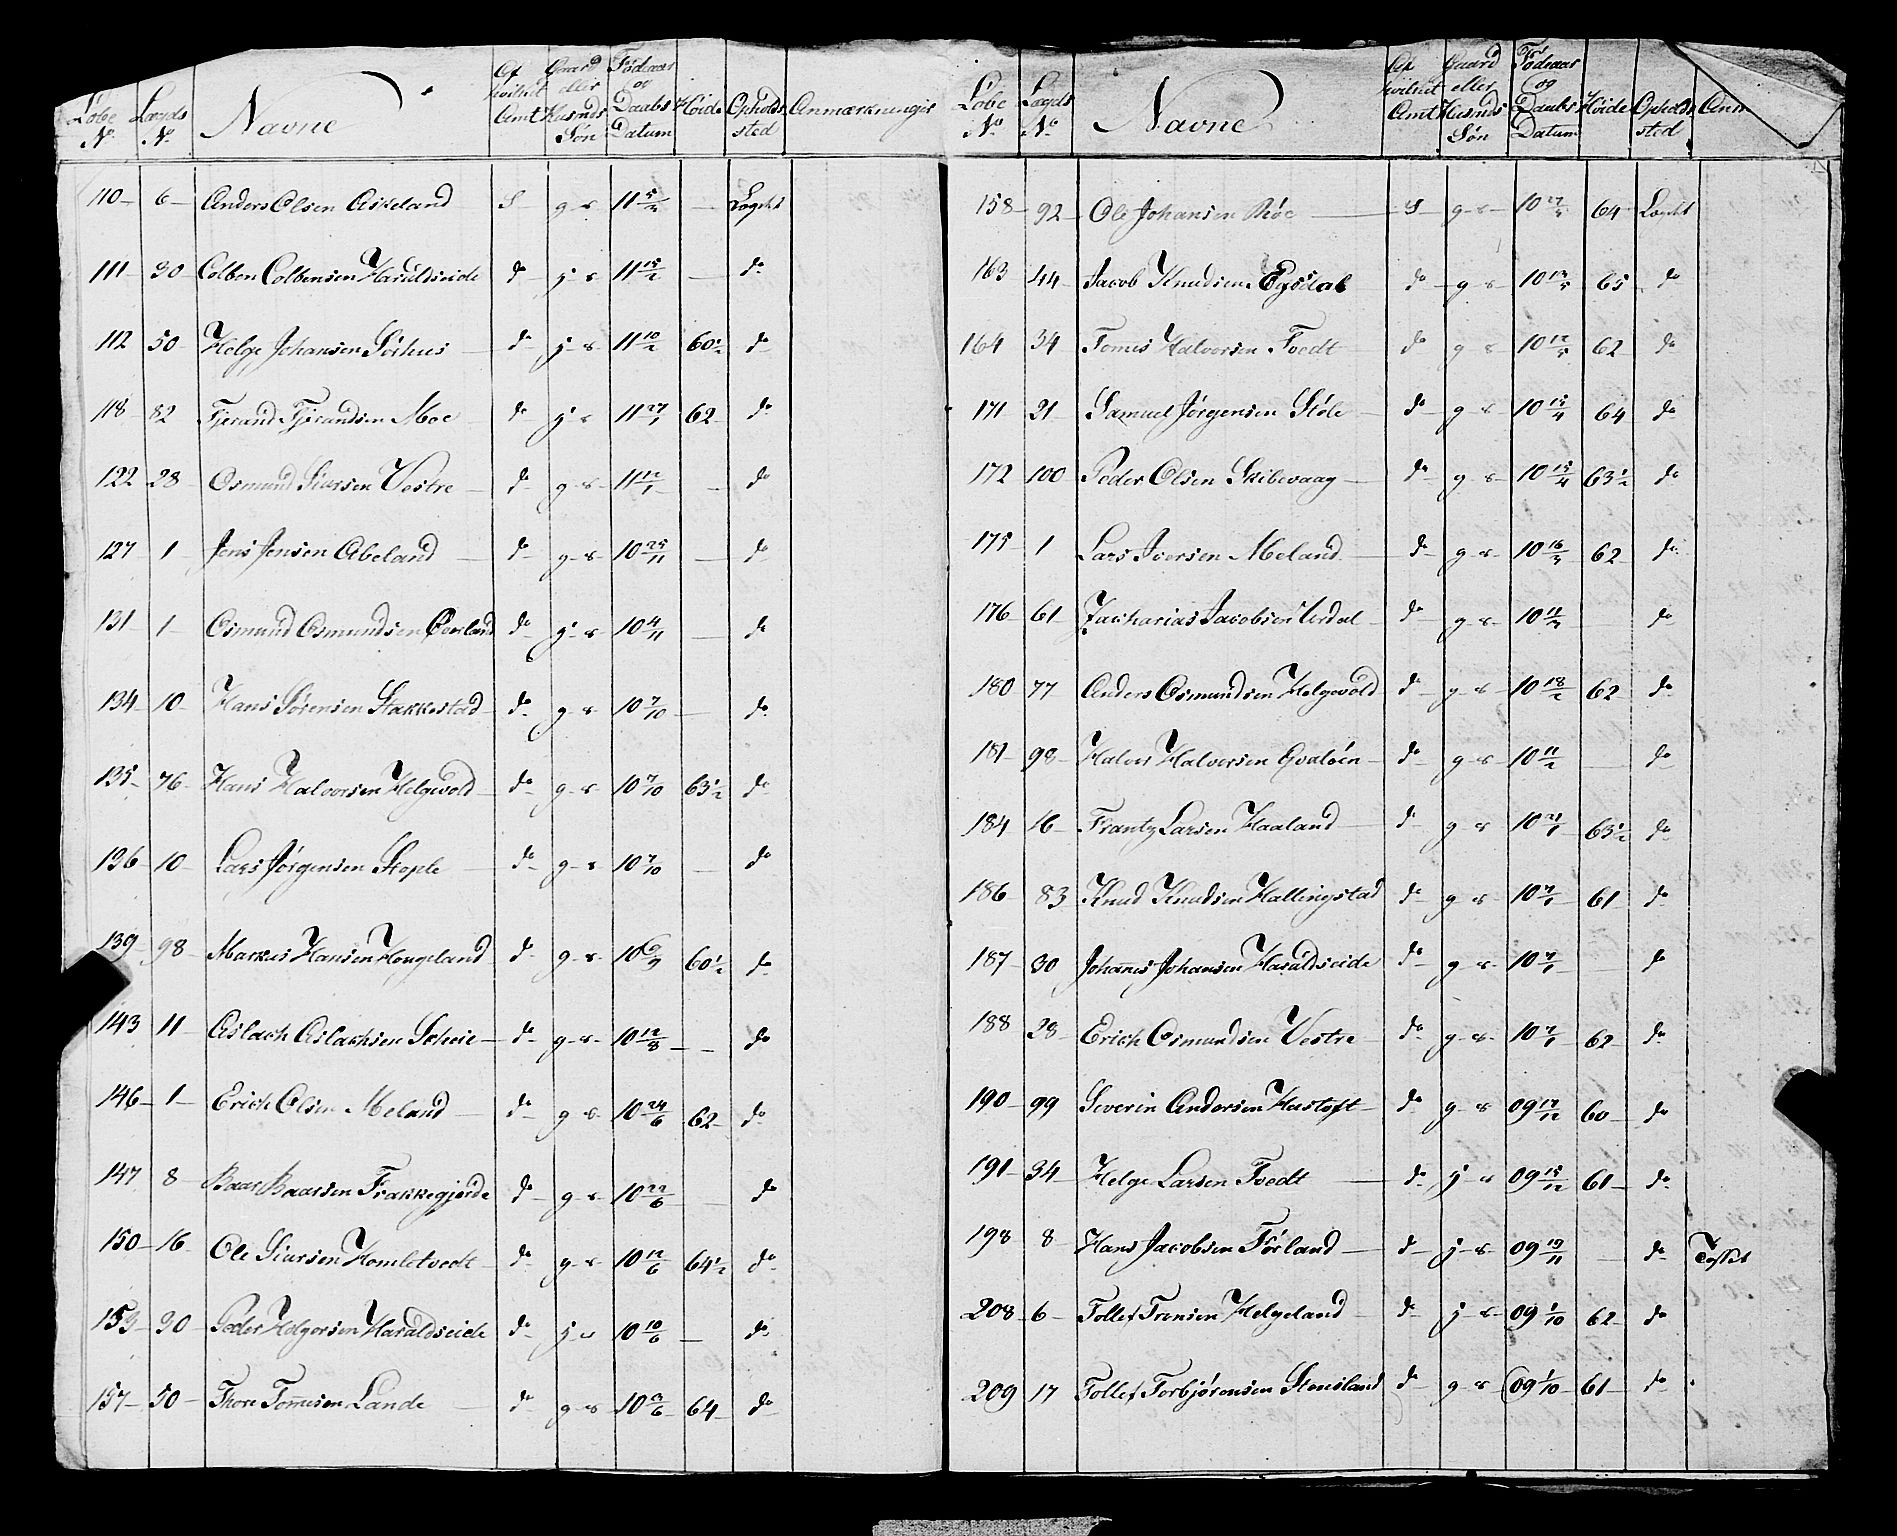 Løbe No | Lægds No | Navne | Af hvilket Amt | Gaard eller Husmds Søn | Fødseaar og Daabs Datum | Høide | Opholds sted | Anmærkninger
110 | 6 | Anders Olsen Askeland | S | g s | 11 5/3 | — | Lægdet
111 | 30 | Colben Colbensen Haraldseide | do | j s | 11 15/2 | — | do
112 | 50 | Helge Johansen Sørhus | do | j s | 11 10/2 | 60 1/2 | do
118 | 82 | Tjerand Tjerandsen Moe | do | j s | 11 27/1 | 62 | do
122 | 28 | Osmund Siursen Vestre | do | g s | 11 12/1 | — | do
127 | 1 | Jens Jensen Abeland | do | g s | 10 25/11 | — | do
131 | 1 | Osmund Osmundsen | do | g s | 10 4/11 | — | do
134 | 10 | Hans Sørensen Stakkestad | do | g s | 10 7/10 | — | do
135 | 76 | Hans Halvorsen Helgevold | do | g s | 10 7/10 | 63 1/2 | do
136 | 10 | Lars Jørgensen Stople | do | g s | 10 7/10 | — | do
139 | 98 | Markus Hansen Hougeland | do | g s | 10 9/9 | 60 1/2 | do
143 | 11 | Aslach Aslachsen Scheie | do | g s | 10 12/8 | — | do
146 | 1 | Erich Olsen Meland | do | g s | 10 24/6 | 62 | do
147 | 8 | Baar Baarsen Frakkegjerde | do | g s | 10 22/6 | — | do
150 | 16 | Ole Siursen Homletvedt | do | g s | 10 12/6 | 64 1/2 | do
153 | 30 | Peder Holgersen Haraldseide | do | j s | 10 10/6 | — | do
157 | 50 | Thore Tommesen Lande | do | g s | 10 3/6 | 64 | do
Løbe No | Lægds No | Navne | Af hvilket Amt | Gaard eller Husmds Søn | Fødseaar og Daabs Datum | Høide | Opholds sted | Anm
158 | 92 | Ole Johansen Røe | S | g s | 10 27/5 | 64 | Lægdet
163 | 44 | Jacob Knudsen Egsdal | do | g s | 10 13/5 | 65 | do
164 | 34 | Tomes Halvorsen Tvedt | do | g s | 10 12/5 | 62 | do
171 | 21 | Samuel Jørgensen Støle | do | g s | 10 15/4 | 64 | do
172 | 100 | Peder Olsen Skibevaag | do | g s | 10 15/4 | 63 1/2 | do
175 | 1 | Lars Iversen Meland | do | g s | 10 16/3 | 62 | do
176 | 61 | Zacharias Jacobsen | do | g s | 10 11/3 | do
180 | 77 | Anders Osmundsen Helgevold | do | g s | 10 18/2 | 62 | do
181 | 98 | Halvor Halvorsen Qvaløen | do | g s | 10 11/2 | — | do
184 | 16 | Frantz Larsen Haaland | do | g s | 10 21/1 | 63 1/2 | do
186 | 83 | Knud Knudsen Hallingstad | do | g s | 10 7/1 | 61 | do
187 | 30 | Johanes Johansen Haraldseide | do | g s | 10 7/1 | — | do
188 | 28 | Erich Osmundsen Vestre | do | g s | 10 7/1 | 62 | do
190 | 99 | Severin Andersen Hustoft | do | g s | 09 17/12 | 60 | do
191 | 34 | Helge Larsen Tvedt | do | j s | 09 15/12 | 61 | do
198 | 8 | Hans Jacobsen Førland | do | j s | 09 19/11 | — | do | Tosset
208 | 6 | Tollef Tronsen Helgeland | do | j s | 09 1/10 | 62 | do
209 | 17 | Tollef Torbjørensen Stensland | do | g s | 09 1/10 | 61 | do